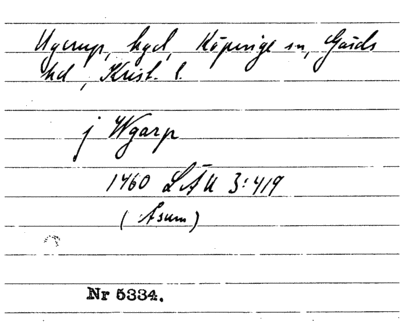 Ugerup, hgd, Köpinge sn, Gärds
hd, Krist. l.
j Wgarp
1460 LÄU 3:419
(Åsum)
Nr 5334.